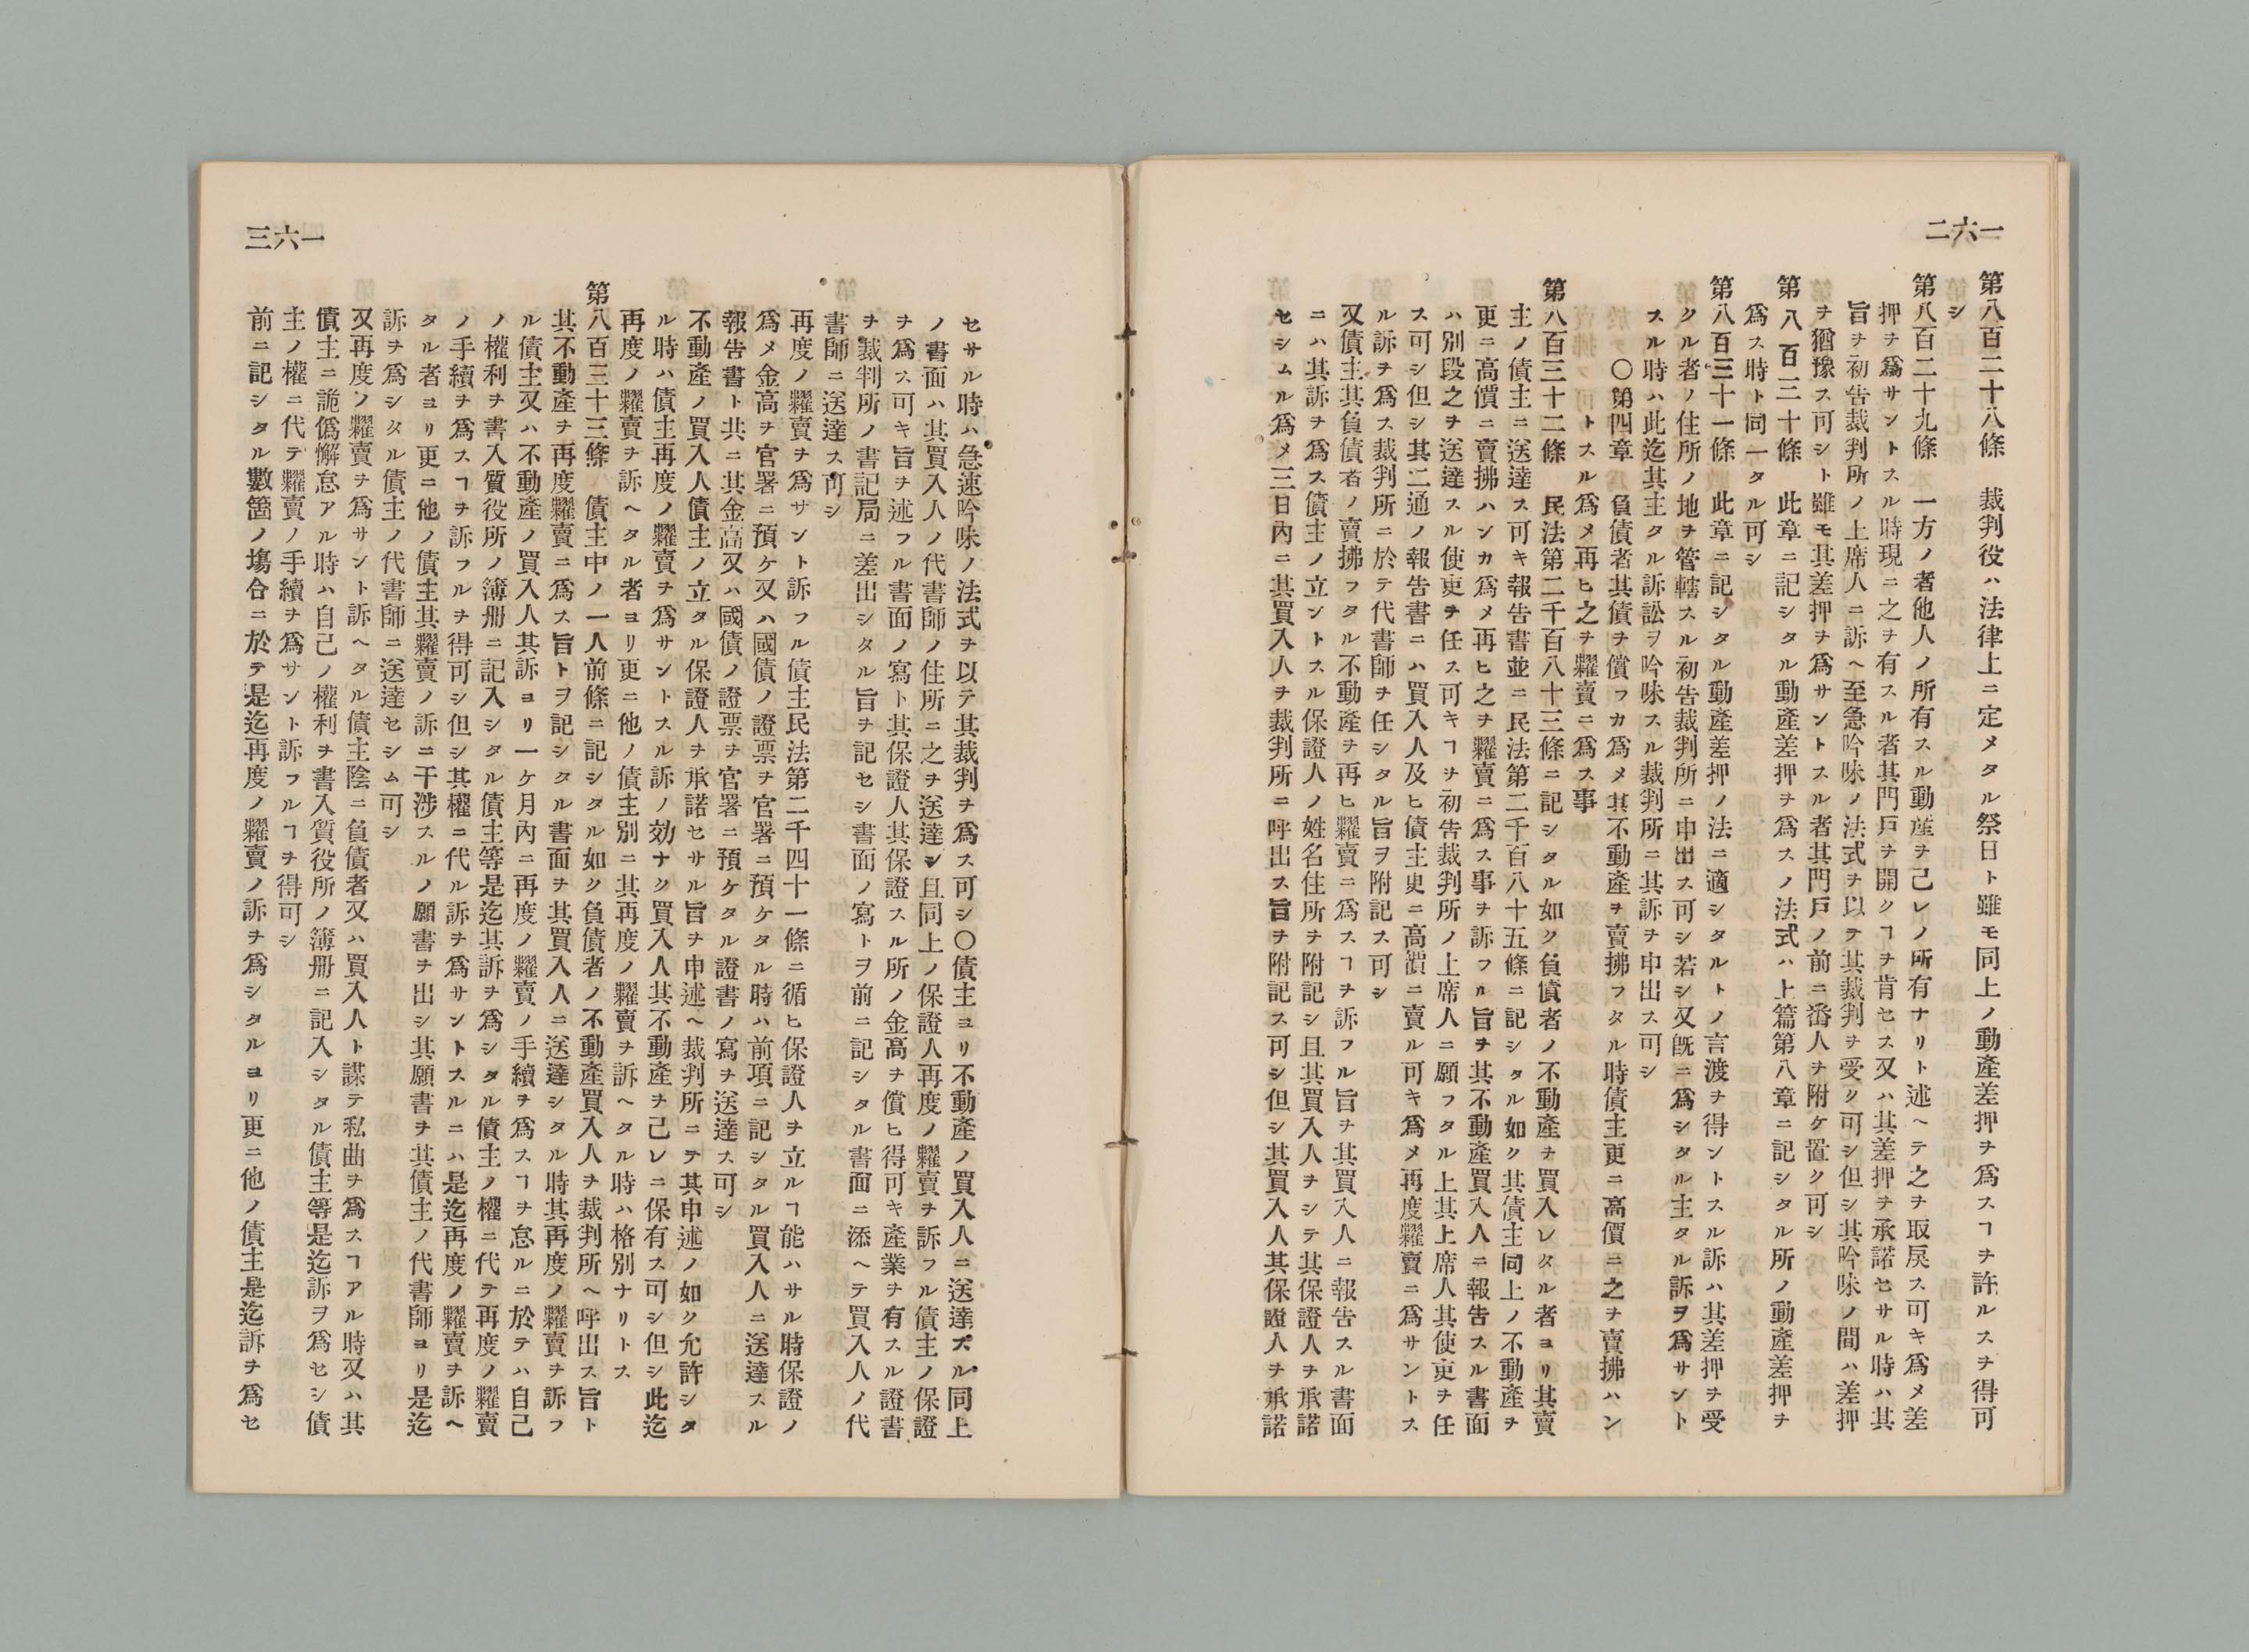 一六二
第八百二十八條　裁判役ハ法律上ニ定メタル祭日ト雖モ同上ノ動產差押ヲ爲スヿヲ許ルスヲ得可
シ
第八百二十九條　一方ノ者他人ノ所有スル動產ヲ己レノ所有ナリト述ヘテ之ヲ取戾ス可キ爲メ差
押ヲ爲サントスル時現ニ之ヲ有スル者其門戶ヲ開クヿヲ肯セス又ハ其差押ヲ承諾セサル時ハ其
旨ヲ初告裁判所ノ上席人ニ訴ヘ至急吟味ノ法式ヲ以テ其裁判ヲ受ク可シ但シ其吟味ノ間ハ差押
ヲ猶豫ス可シト雖モ其差押ヲ爲サントスル者其門戶ノ前ニ番人ヲ附ケ置ク可シ
第八百三十條　此章ニ記シタル動產差押ヲ爲スノ法式ハ上篇第八章ニ記シタル所ノ動產差押ヲ
爲ス時ト同一タル可シ
第八百三十一條　此章ニ記シタル動產差押ノ法ニ適シタルトノ言渡ヲ得ントスル訴ハ其差押ヲ受
クル者ノ住所ノ地ヲ管轄スル初告裁判所ニ申出ス可シ若シ又旣ニ爲シタル主タル訴ヲ爲サント
スル時ハ此迄其主タル訴訟ヲ吟味スル裁判所ニ其訴ヲ申出ス可シ
〇第四章　負債者其債ヲ償フカ爲メ其不動產ヲ賣拂フタル時債主更ニ高價ニ之ヲ賣拂ハン
トスル爲メ再ヒ之ヲ糶賣ニ爲ス事
第八百三十二條　民法第二千百八十三條ニ記シタル如ク負債者ノ不動產ヲ買入レタル者ヨリ其賣
主ノ債主ニ送達ス可キ報告書並ニ民法第二千百八十五條ニ記シタル如ク其債主同上ノ不動產ヲ
更ニ高價ニ賣拂ハンカ爲メ再ヒ之ヲ糶賣ニ爲ス事ヲ訴フル旨ヲ其不動產買入人ニ報告スル書面
ハ別段之ヲ送達スル使吏ヲ任ス可キヿヲ初告裁判所ノ上席人ニ願フタル上其上席人其使吏ヲ任
ス可シ但シ其二通ノ報告書ニハ買入人及ヒ債主更ニ高價ニ賣ル可キ爲メ再度糶賣ニ爲サントス
ル訴ヲ爲ス裁判所ニ於テ代書師ヲ任シタル旨ヲ附記ス可シ
又債主其負債者ノ賣拂フタル不動產ヲ再ヒ糶賣ニ爲スヿヲ訴フル旨ヲ其買入人ニ報告スル書面
ニハ其訴ヲ爲ス債主ノ立ントスル保證人ノ姓名住所ヲ附記シ且其買入人ヲシテ其保證人ヲ承諾
セシムル爲メ三日內ニ其買入人ヲ裁判所ニ呼出ス旨ヲ附記ス可シ但シ其買入人其保證人ヲ承諾
一六三
セサル時ハ急速吟味ノ法式ヲ以テ其裁判ヲ爲ス可シ〇債主ヨリ不動產ノ買入人ニ送達スル同上
ノ書面ハ其買入人ノ代書師ノ住所ニ之ヲ送達シ且同上ノ保證人再度ノ糶賣ヲ訴フル債主ノ保證
ヲ爲ス可キ旨ヲ述フル書面ノ寫ト其保證人其保證スル所ノ金高ヲ償ヒ得可キ產業ヲ有スル證書
ヲ裁判所ノ書記局ニ差出シタル旨ヲ記セシ書面ノ寫トヲ前ニ記シタル書面ニ添ヘテ買入人ノ代
書師ニ送達ス可シ
再度ノ糶賣ヲ爲サント訴フル債主民法第二千四十一條ニ循ヒ保證人ヲ立ルヿ能ハサル時保證ノ
爲メ金高ヲ官署ニ預ケ又ハ國債ノ證票ヲ官署ニ預ケタル時ハ前項ニ記シタル買入人ニ送達スル
報告書ト共ニ其金高又ハ國債ノ證票ヲ官署ニ預ケタル證書ノ寫ヲ送達ス可シ
不動產ノ買入人債主ノ立タル保證人ヲ承諾セサル旨ヲ申述ヘ裁判所ニテ其申述ノ如ク允許シタ
ル時ハ債主再度ノ糶賣ヲ爲サントスル訴ノ効ナク買入人其不動產ヲ己レニ保有ス可シ但シ此迄
再度ノ糶賣ヲ訴ヘタル者ヨリ更ニ他ノ債主別ニ其再度ノ糶賣ヲ訴ヘタル時ハ格別ナリトス
第八百三十三條　債主中ノ一人前條ニ記シタル如ク負債者ノ不動產買入人ヲ裁判所ヘ呼出ス旨ト
其不動產ヲ再度糶賣ニ爲ス旨トヲ記シタル書面ヲ其買入人ニ送達シタル時其再度ノ糶賣ヲ訴フ
ル債主又ハ不動產ノ買入人其訴ヨリ一ケ月內ニ再度ノ糶賣ノ手續ヲ爲スヿヲ怠ルニ於テハ自己
ノ權利ヲ書入質役所ノ簿册ニ記入シタル債主等是迄其訴ヲ爲シタル債主ノ權ニ代テ再度ノ糶賣
ノ手續ヲ爲スヿヲ訴フルヲ得可シ但シ其權ニ代ル訴ヲ爲サントスルニハ是迄再度ノ糶賣ヲ訴ヘ
タル者ヨリ更ニ他ノ債主其糶賣ノ訴ニ干涉スルノ願書ヲ出シ其願書ヲ其債主ノ代書師ヨリ是迄
訴ヲ爲シタル債主ノ代書師ニ送達セシム可シ
又再度ノ糶賣ヲ爲サント訴ヘタル債主陰ニ負債者又ハ買入人ト謀テ私曲ヲ爲スヿアル時又ハ其
債主ニ詭僞懈怠アル時ハ自己ノ權利ヲ書入質役所ノ簿册ニ記入シタル債主等是迄訴ヲ爲セシ債
主ノ權ニ代テ糶賣ノ手續ヲ爲サント訴フルヿヲ得可シ
前ニ記シタル數箇ノ塲合ニ於テ是迄再度ノ糶賣ノ訴ヲ爲シタルヨリ更ニ他ノ債主是迄訴ヲ爲セ